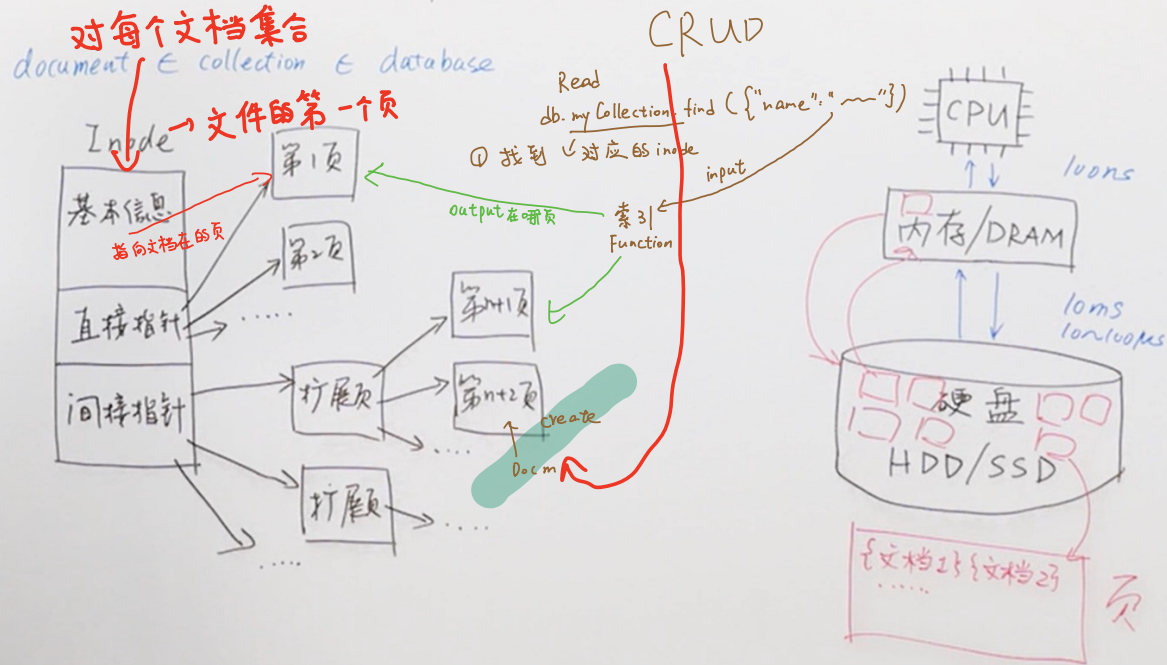 对每个文档集合
document ∈ collection ∈ database
Inode
→ 文件的第一个页
基本信息
指向文档在的页
直接指针
间接指针
第1页
第2页
......
扩展页
第n+1页
第n+2页
....
扩展页
.....
.....
CRUD
Read
db.myCollection.find({"name":" ~~~"})
① 找到 对应的inode
input
索引
Function
output在哪页
create
Docm
CPU
100ns
内存/DRAM
10ms
10~100μs
硬盘
HDD/SSD
{文档1}{文档2}
......
页